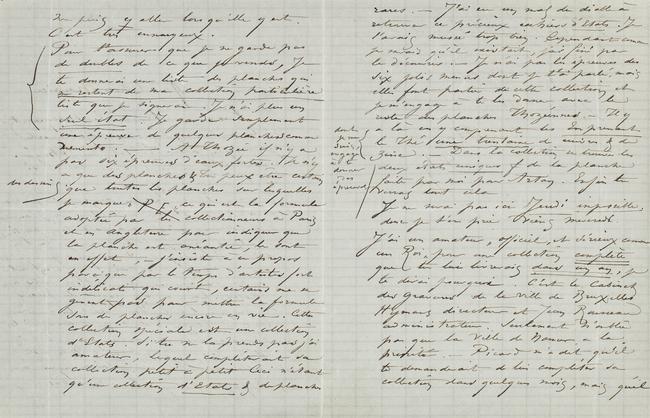 ne puis y aller lorsqu'elle y est.
C'est très ennuyeux.
Pour t'assurer que je ne garde pas
de doubles de ce que je vends, je
te donnerai une liste des planches qui
me restent de ma collection particulière
liste que je signerai. Je n'ai plus un
seul état. Je garde simplement
une épreuve de quelques planches comme
memento. —
pas six épreuves d'eaux fortes. Il n'y
a que des planches & tu peux être certain
que toutes les planches sur lesquelles
je marque ce qui est la formule
adoptée par les collectionneurs à Paris
et en Angleterre pour indiquer que
la planche est anéantie, le sont
en effet. — J'insiste à ce propos
parce que par le temps d'artistes
indélicats qui court, certains ne se
gênent pas pour mettre la formule
sur des planches encore en vie. Cette
collection spéciale est une collection
d'Etats. Si tu ne la prends pas j'ai
amateur, lequel compléterait sa
collection petit à petit ceci n'étant
qu'une collection d'Etats & de planches
rares. — J'ai eu un mal de diable à
retrouver ce précieux cahier d'Etats. Je
l'avais musé trop bien. Cependant comme
je savais qu'il existait, j'ai fini par
le découvrir. Je n'ai pas les épreuves des
six jolis menus dont je t'ai parlé, mais
elles font partie de cette collection et
je m'engage à te les donner avec le
reste des planches — Il y
a là en y comprenant les
le Thé une trentaine de cuivres & de
— Dans la collection se trouve les
deux états uniques de la planche
faite par moi par Enfin tu
verras tout cela.
Je ne serai pas ici Jeudi impossible,
donc je t'en prie viens mercredi.
J'ai un amateur, officiel, et sérieux comme
un Roi, pour une collection complète
que tu lui livrerais dans un an, je
te dirai pourquoi. C'est le Cabinet
des Gravures de la ville de Bruxelles
Hymans directeur et Jean Rousseau
administrateur. Seulement n'oublie
pas que la Ville de Namur a la
— Picard m'a dit qu'il
te demanderait de lui compléter sa
collection dans quelques mois, mais qu'il